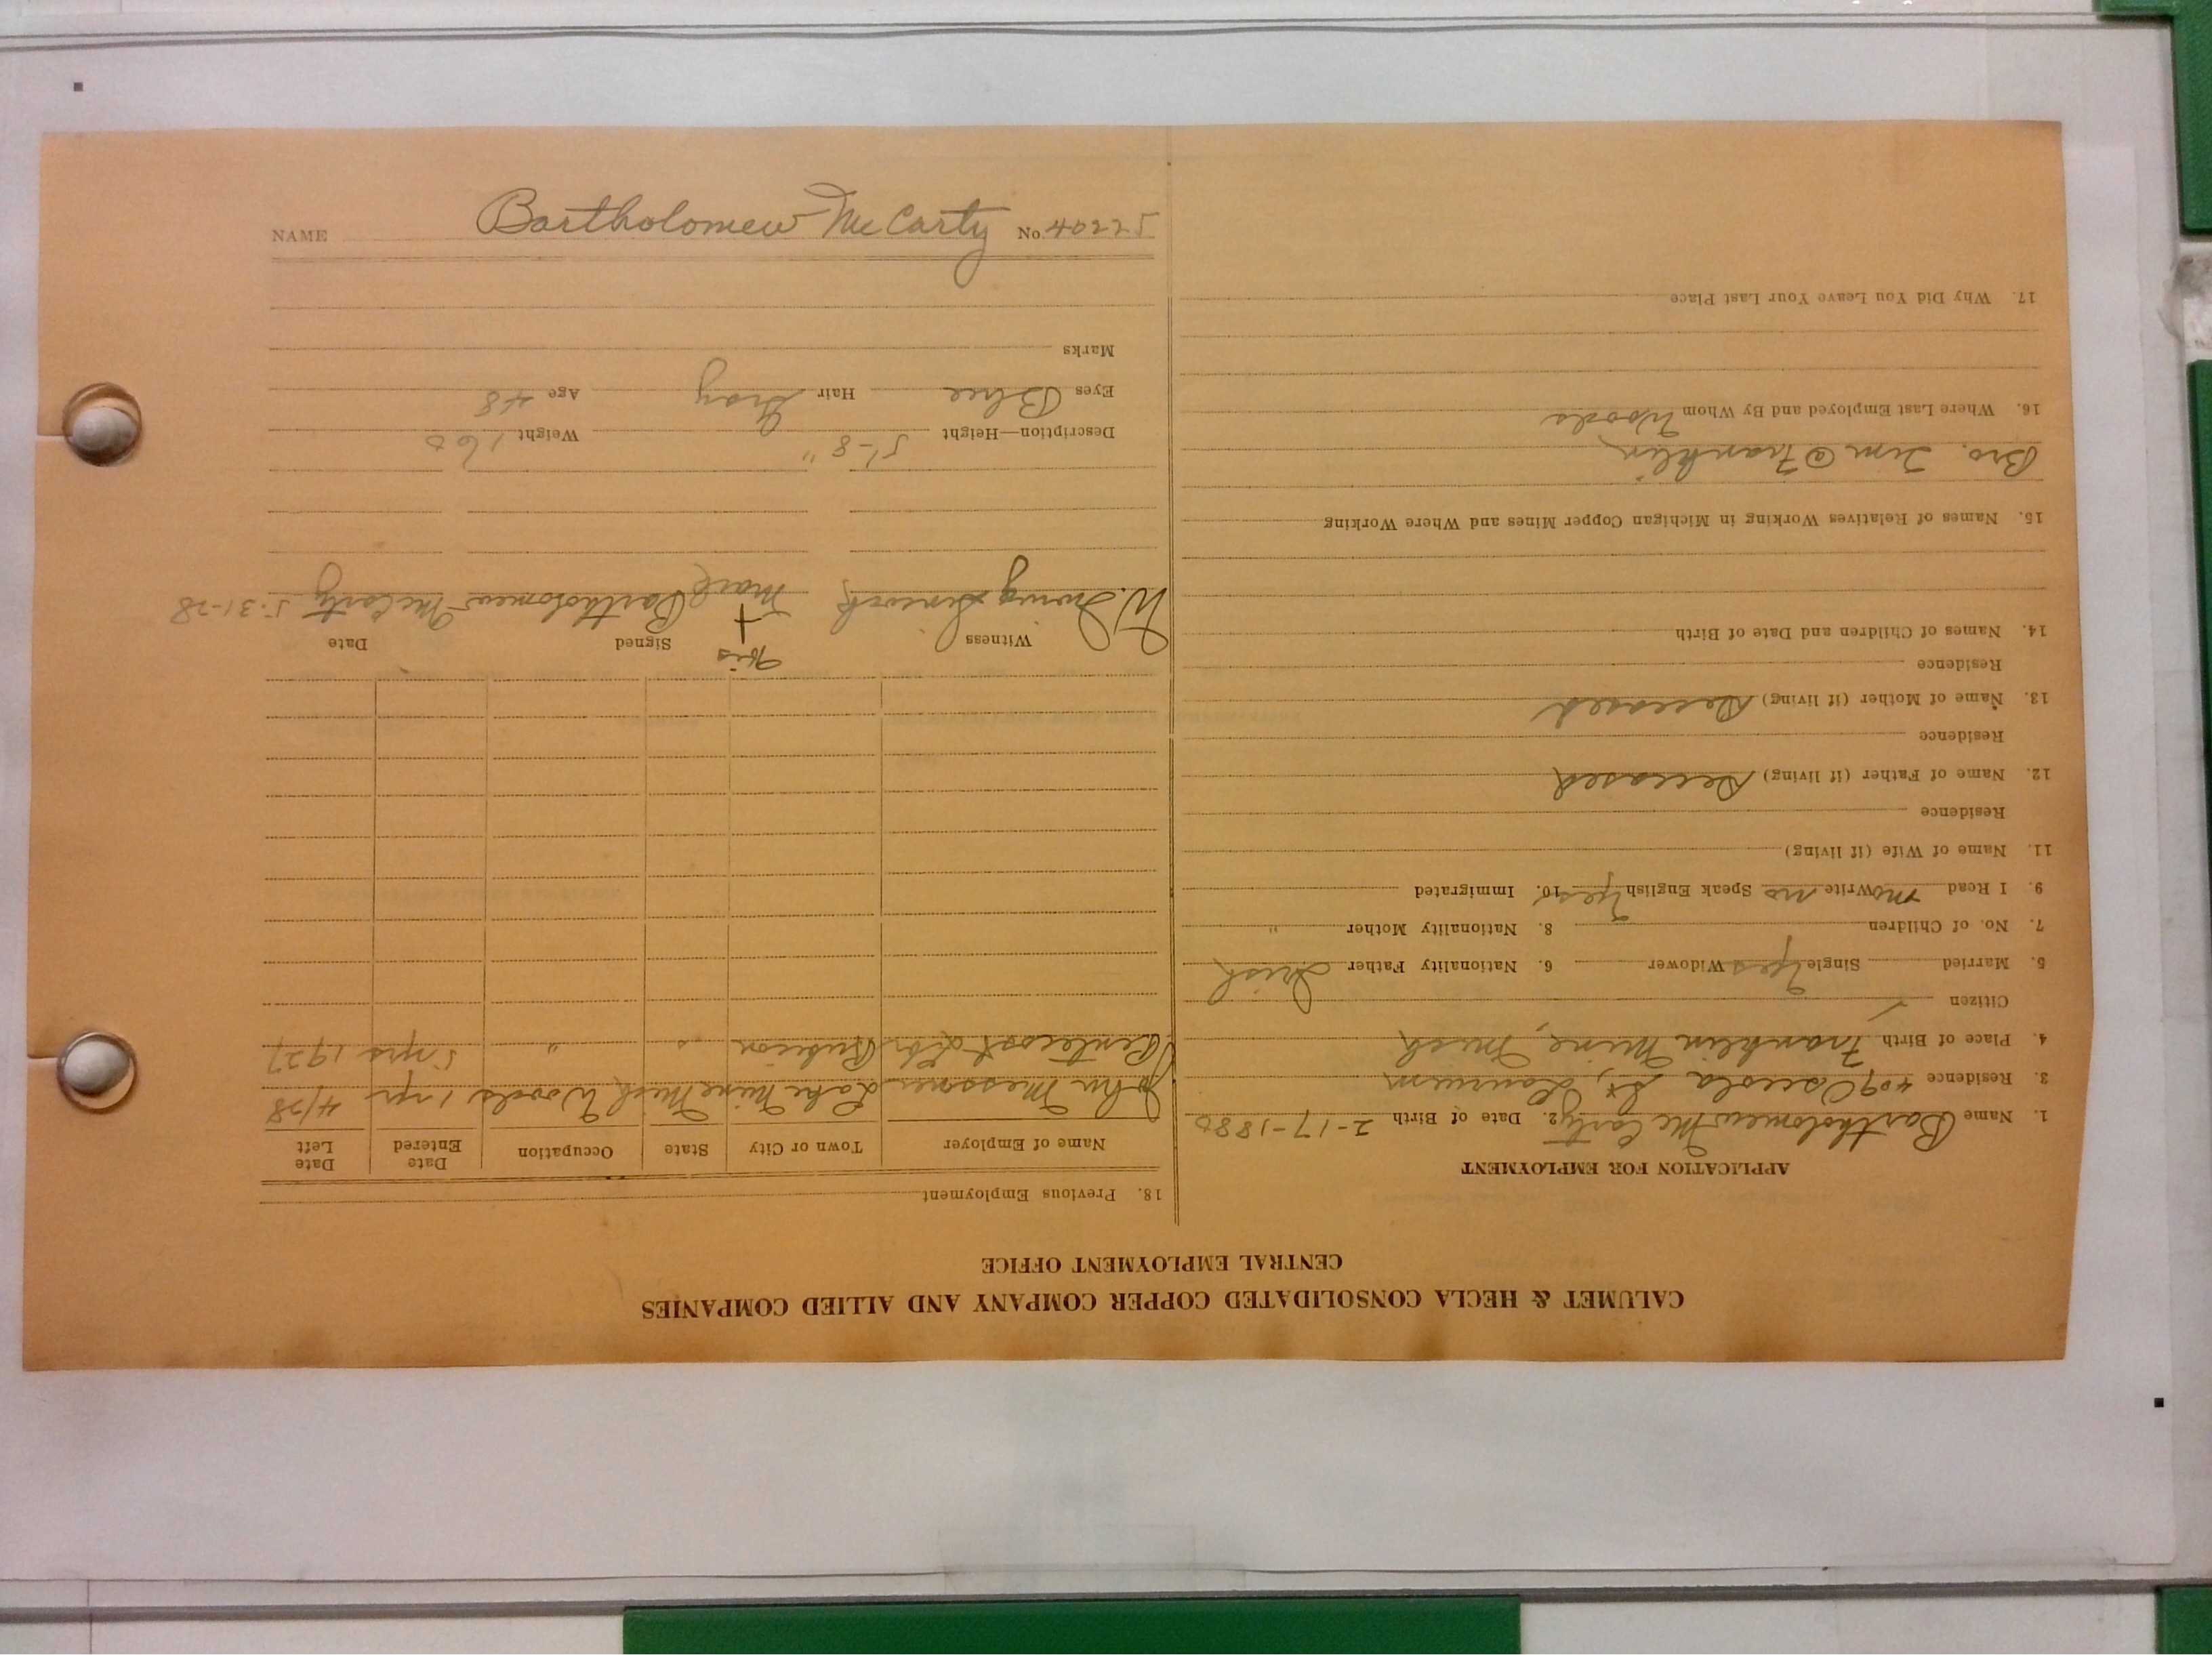 CALUMET & HECLA CONSOLIDATED COPPER COMPANY AND ALLIED COMPANIES
CENTRAL EMPLOYMENT OFFICE
APPLICATION FOR EMPLOYMENT
1. Name Bartholomew McCarty 2. Date of Birth 2-17-1880
3. Residence 409 Osceola St, Laurium
4. Place of Birth Franklin Mine, Mich
Citizen
5. Married Single Yes Widower 6. Nationality Father Irish
7. No. of Children 8. Nationality Mother "
9. I Read no Write no Speak English Yes 10. Immigrated
11. Name of Wife (if living)
Residence
12. Name of Father (if living) Deceased
Residence
13. Name of Mother (if living) Deceased
Residence
14. Names of Children and Date of Birth
15. Names of Relatives Working in Michigan Copper Mines and Where Working
Bro. Tim @ Franklin
16. Where Last Employed and By Whom Woods
17. Why Did You Leave Your Last Place
18. Previous Employment
Name of Employer Town or City State Occupation Date Entered Date Left
John Messner Lake Mine Mich Woods 1 yr 4/28
Pentecost Lbr " " 5 yrs 1927
Witness Signed Date
W. Irving his + mark Bartholomew McCarty 5-31-28
Description—Height 5'-8" Weight 160
Eyes Blue Hair Gray Age 48
Marks
NAME Bartholomew McCarty No. 40225